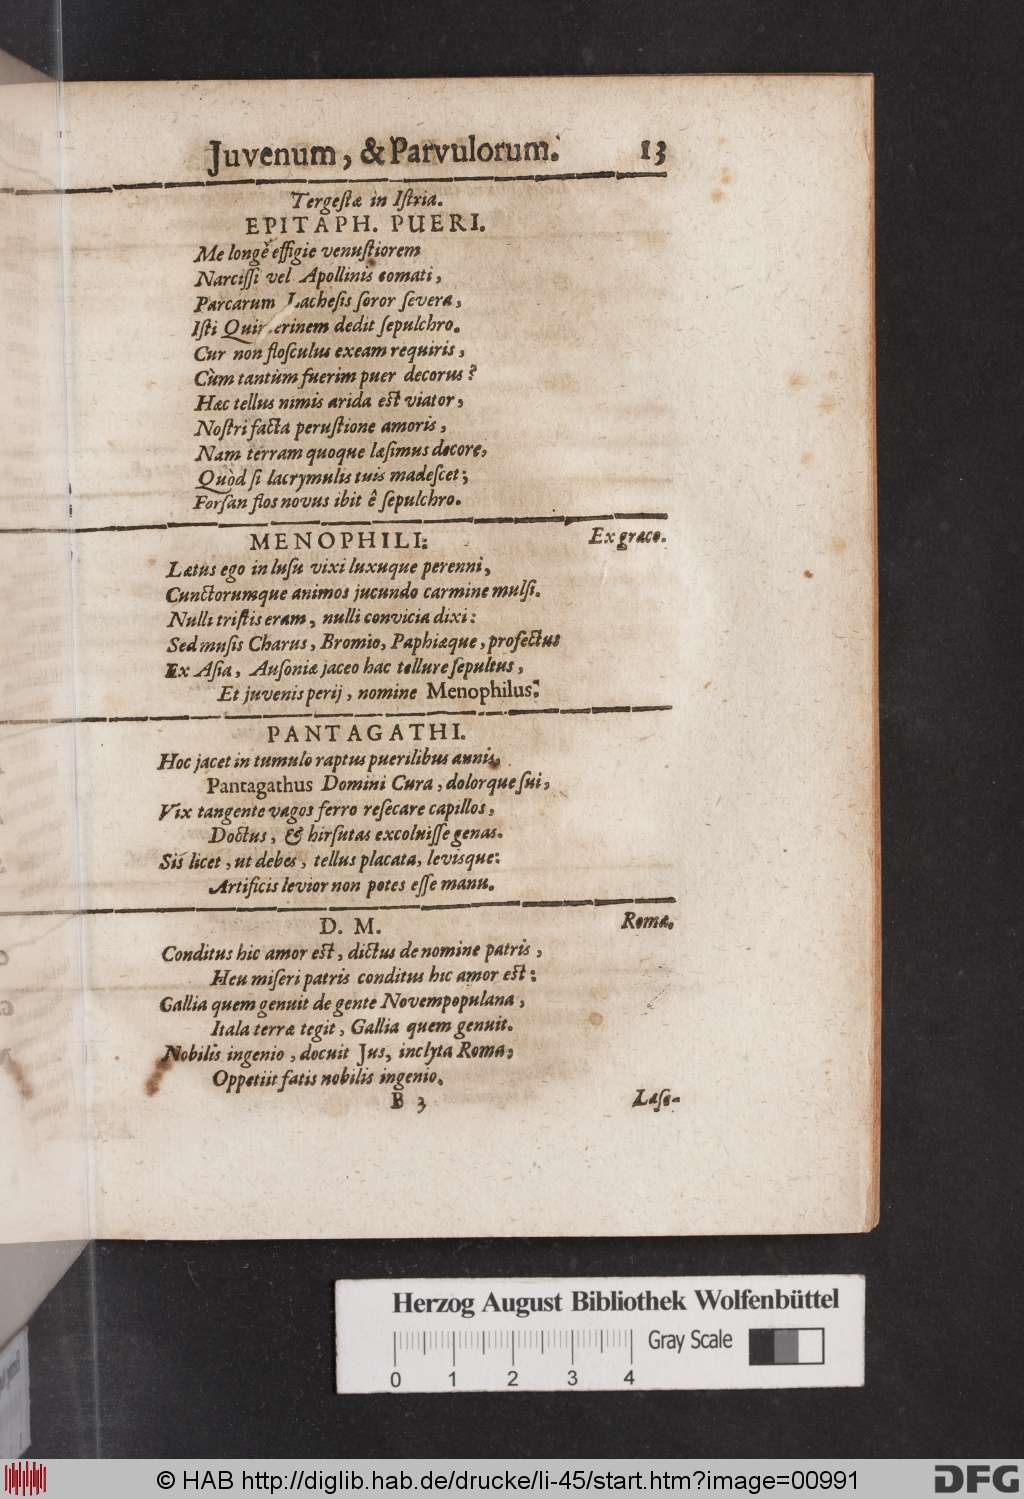 Juvenum, & Parvulorum. 13
Tergestæ in Iſtria.
EPITAPH. PUERI.
Me longè effigie venuſtiorem
Narciſſi vel Apollinis comati,
Parcarum Lacheſis ſoror ſevera,
Iſti dedit ſepulchro.
Cur non floſculus exeam requiris,
Cùm tantùm fuerim puer decorus?
Hæc tellus nimis arida eſt viator,
Noſtri facta peruſtione amoris,
Nam terram quoque læſimus decore,
Quòd ſi lacrymulis tuis madeſcet;
Forſan flos novus ibit ê ſepulchro.
MENOPHILI: Ex græco.
Lætus ego in luſu vixi luxuque perenni,
Cunctorumque animos jucundo carmine mulſi.
Nulli triſtis eram, nulli convicia dixi:
Sed muſis Charus, Bromio, Paphiæque, profectus
Ex Aſia, Auſoniæ jaceo hac tellure ſepultus,
Et juvenis perij, nomine Menophilus.
PANTAGATHI.
Hoc jacet in tumulo raptus puerilibus annis,
Pantagathus Domini Cura, dolorque ſui,
Vix tangente vagos ferro reſecare capillos,
Doctus, & hirſutas excoluiſſe genas.
Sis licet, ut debes, tellus placata, levisque:
Artificis levior non potes eſſe manu.
D. M. Romæ.
Conditus hic amor eſt, dictus de nomine patris,
Heu miſeri patris conditus hic amor eſt:
Gallia quem genuit de gente Novempopulana,
Itala terræ tegit, Gallia quem genuit.
Nobilis ingenio, docuit Jus, inclyta Roma,
Oppetiit fatis nobilis ingenio.
B 3 Laſe-
Herzog August Bibliothek Wolfenbüttel
Gray Scale
0 1 2 3 4
© HAB http://diglib.hab.de/drucke/li-45/start.htm?image=00991 DFG